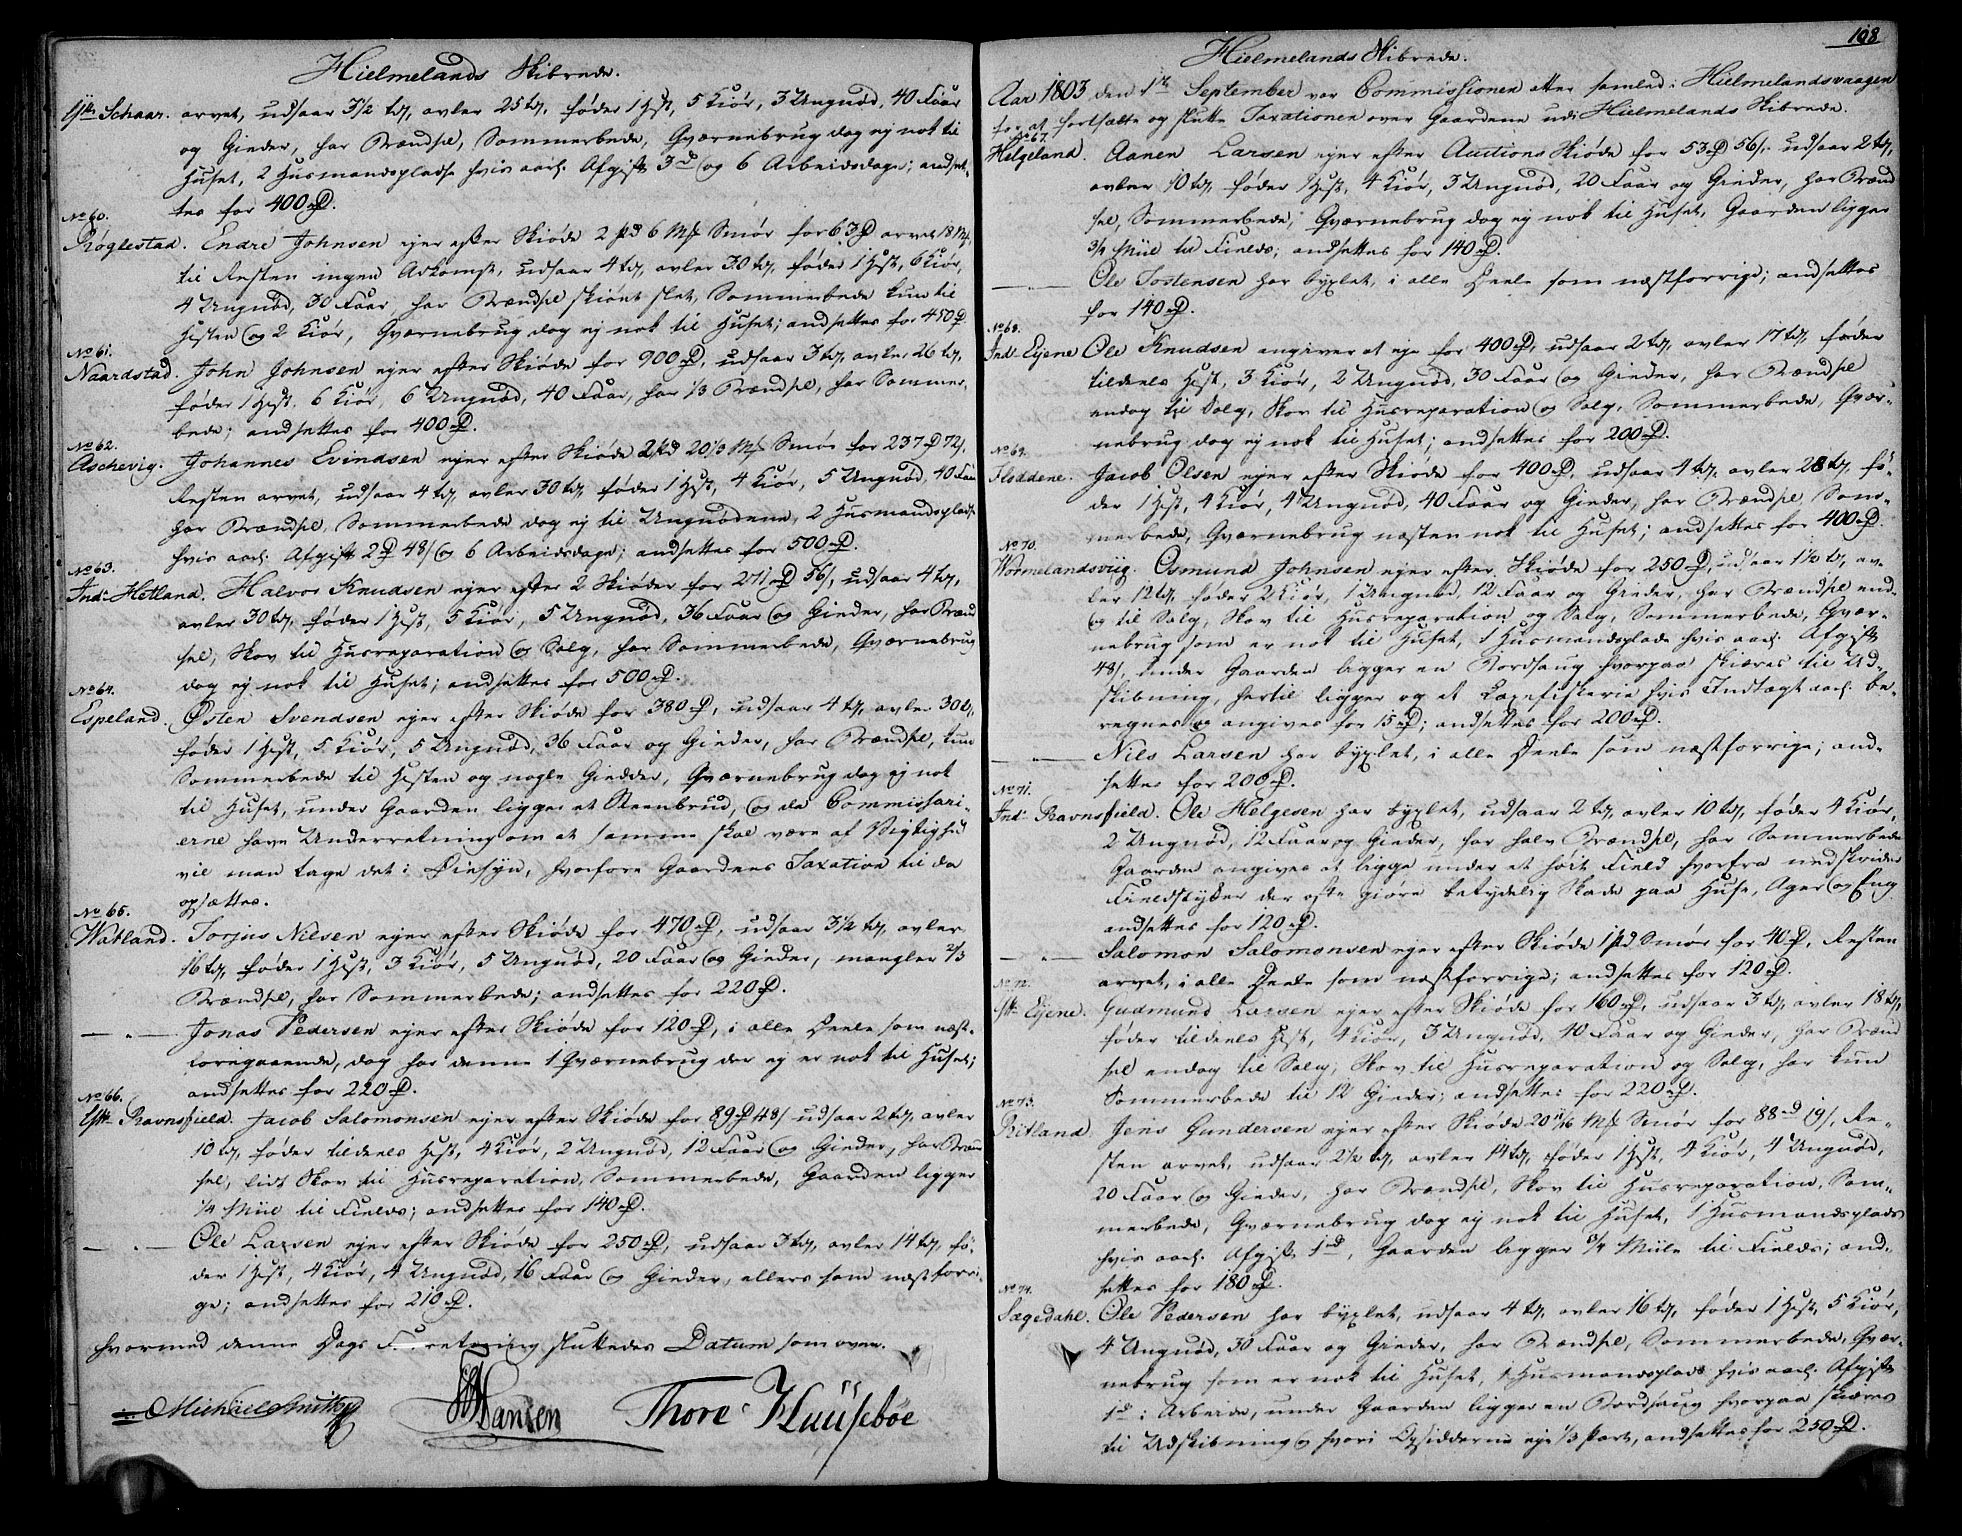 Hielmelands Skibrede.
Ytr. Schaar. arvet, udsaar 3½ td, avler 25 td, føder 1 Hest, 5 Kiør, 3 Ungnød, 40 Faar
og Gieder, har Brændsel, Sommerbede, Qværnebrug dog ej nok til
Huset, 2 Husmandspladse hvis aarl. Afgift 3 d og 6 Arbeidsdage; andset-
tes for 400 rD.
No 60.
Røglestad. Endre Johnsen ejer efter Skiøde 2 pd 6 Mk Smør for 63 D arvet 18 Mk,
til Resten ingen Adkomst, udsaar 4 td, avler 30 td, føder 1 Hest, 6 Kiør,
4 Ungnød, 30 Faar, har Brændsel skiønt slet, Sommerbede kun til
Hesten og 2 Kiør, Qværnebrug dog ej nok til Huset; andsettes for 450 D
No 61.
Naardstad. John Johnsen ejer efter Skiøde for 900 rD, udsaar 3 td, avler 26 td,
føder 1 Hest, 6 Kiør, 6 Ungnød, 40 Faar, har 1/3 Brændsel, har Sommer-
bede; andsettes for 400 rD.
No 62.
Aschevig. Johannes Evindsen ejer efter Skiøde 2 pd 20 1/3 Mk Smør for 237 D 72 s,
Resten arvet, udsaar 4 td, avler 30 td, føder 1 Hest, 4 Kiør, 5 Ungnød, 40 Faar
har Brændsel, Sommerbede dog ej til Ungnødene, 2 Husmandspladse
hvis aarl. Afgift 2 D 48 s og 6 Arbeidsdage; andsettes for 500 rD.
No 63.
Ind: Hetland. Halvor Knudsen ejer efter 2 Skiøder for 271 rD 56 s, udsaar 4 td,
avler 30 td, føder 1 Hest, 5 Kiør, 5 Ungnød, 36 Faar og Gieder, har Brænd
sel, Skov til Husreparation og Salg, har Sommerbede, Qværnebrug
dog ej nok til Huset; andsettes for 500 rD.
No 64.
Espeland. Østen Svendsen ejer efter Skiøde for 380 rD, udsaar 4 td, avler 30 td,
føder 1 Hest, 5 Kiør, 5 Ungnød, 36 Faar og Gieder, har Brændsel, kun
Sommerbede til Hesten og nogle Giedder, Qværnebrug dog ej nok
til Huset, under Gaarden ligger et Steenbrud, og da Commissari-
erne have Underretning om at samme skal være af Vigtighed
vil man tage det i Øiesyn, hvorfore Gaardens Taxation til da
opsættes.
No 65.
Watland. Torjus Nilsen ejer efter Skiøde for 470 rD, udsaar 3½ td, avler
16 td, føder 1 Hest, 3 Kiør, 5 Ungnød, 20 Faar og Gieder, mangler 2/3
Brændsel, har Sommerbede; andsettes for 220 rD.
— " — Jonas Pedersen ejer efter Skiøde for 120 rD, i alle Deele som næst-
foregaaende, dog har denne 1 Qværnebrug der ej er nok til Huset;
andsettes for 220 rD.
No 66.
Ytr. Ravnsfield. Jacob Salomonsen ejer efter Skiøde for 89 rD 48 s udsaar 2 td, avler
10 td, føder tildeels Hest, 4 Kiør, 2 Ungnød, 12 Faar og Gieder, har Brænd
sel, lidt Skov til Husreparation, Sommerbede, Gaarden ligger
¼ Miil til Fields; andsettes for 140 rD.
— " — Ole Larsen ejer efter Skiøde for 250 rD, udsaar 3 td, avler 14 td, fø-
der 1 Hest, 4 Kiør, 4 Ungnød, 16 Faar og Gieder, ellers som næstforri-
ge; andsettes for 210 rD.
hvormed denne Dags Forretning sluttedes Datum som oven.
Michael Smith Hansen Thore Kluusebøe
108
Hielmelands Skibrede.
Aar 1803 den 1te September var Commissionen atter samled i Hielmelandsvaagen
for at fortsætte og slutte Taxationen over Gaardene udi Hielmelands Skibrede.
No 67.
Helgeland. Aanen Larsen ejer efter Auctions Skiøde for 53 D 56 s. udsaar 2 td,
avler 10 td, føder 1 Hest, 4 Kiør, 3 Ungnød, 20 Faar og Gieder, har Brænd
sel, Sommerbede, Qværnebrug dog ej nok til Huset, Gaarden ligger
¾ Miil til Fields; andsettes for 140 rD.
— " — Ole Tostensen har byxlet, i alle Deele som næstforrige; andsettes
for 140 rD.
No 68.
Ind. Eyene Ole Knudsen angiver at eje for 400 rD, udsaar 2 td, avler 17 td, føder
tildeels Hest, 3 Kiør, 2 Ungnød, 30 Faar og Gieder, har Brændsel
endog til Salg, Skov til Husreparation og Salg, Sommerbede, Qvær-
nebrug dog ej nok til Huset; andsettes for 200 rD.
No 69.
Floddene. Jacob Olsen ejer efter Skiøde for 400 rD, udsaar 4 td, avler 28 td, fø-
der 1 Hest, 4 Kiør, 4 Ungnød, 40 Faar og Gieder, har Brændsel, Som-
merbede, Qværnebrug næsten nok til Huset; andsettes for 400 rD.
No 70.
Wormelandsviig. Osmund Johnsen ejer efter Skiøde for 250 rD, udsaar 1½ td, av-
ler 12 td, føder 2 Kiør, 1 Ungnød, 12 Faar og Gieder, har Brændsel end-
og til Salg, Skov til Husreparation og Salg, Sommerbede, Qvær-
nebrug som er nok til Huset, 1 Husmandsplads hvis aarl. Afgift
48 s, under Gaarden ligger en Bordsaug hvorpaa skiæres til Ud-
skibning, hertil ligger og et Laxefiskerie hvis Indtægt aarl. be-
regnes og angives for 15 rD; andsettes for 200 rD.
— " — Nils Larsen har byxlet, i alle Deele som næstforrige; and-
settes for 200 rD.
No 71.
Ind: Ravnsfield. Ole Helgesen har byxlet, udsaar 2 td, avler 10 td, føder 4 Kiør,
2 Ungnød, 12 Faar og Gieder, har halv Brændsel, har Sommerbede
Gaarden angives at ligge under et høit Field hvorfra nedskrider
Fieldstykker der ofte giøre betydelig Skade paa Huse, Ager og Eng
andsettes for 120 rD.
— " — Salomon Salomonsen ejer efter Skiøde 1 pd Smør for 40 rD, Resten
arvet, i alle Deele som næstforrige; andsettes for 120 rD.
No 72.
Ytr. Eyene. Gudmund Larsen ejer efter Skiøde for 160 rD, udsaar 3 td, avler 18 td,
føder tildeels Hest, 4 Kiør, 3 Ungnød, 40 Faar og Gieder, har Brænd
sel endog til Salg, Skov til Husreparation og Salg, har kun
Sommerbede til 12 Gieder; andsettes for 220 rD.
No 73.
Ritland. Jens Gundersen ejer efter Skiøde 20 11/16 Mk Smør for 88 D 19 s, Re-
sten arvet, udsaar 2½ td, avler 14 td, føder 1 Hest, 4 Kiør, 4 Ungnød,
20 Faar og Gieder, har Brændsel, Skov til Husreparation, Som-
merbede, Qværnebrug dog ej nok til Huset, 1 Husmandsplads
hvis aarl. Afgift 1 d, Gaarden ligger 5/4 Miile til Fields; and-
settes for 180 rD.
No 74.
Sagedahl. Ole Pedersen har byxlet, udsaar 4 td, avler 16 td, føder 1 Hest, 5 Kiør,
4 Ungnød, 30 Faar og Gieder, har Brændsel, Sommerbede, Qvær-
nebrug som er nok til Huset, 1 Husmandsplads hvis aarl. Afgift
1 d i Arbeide, under Gaarden ligger en Bordsaug hvorpaa skiæres
til Udskibning og hvori Opsidderne eje 1/3 Part, andsettes for 250 rD.